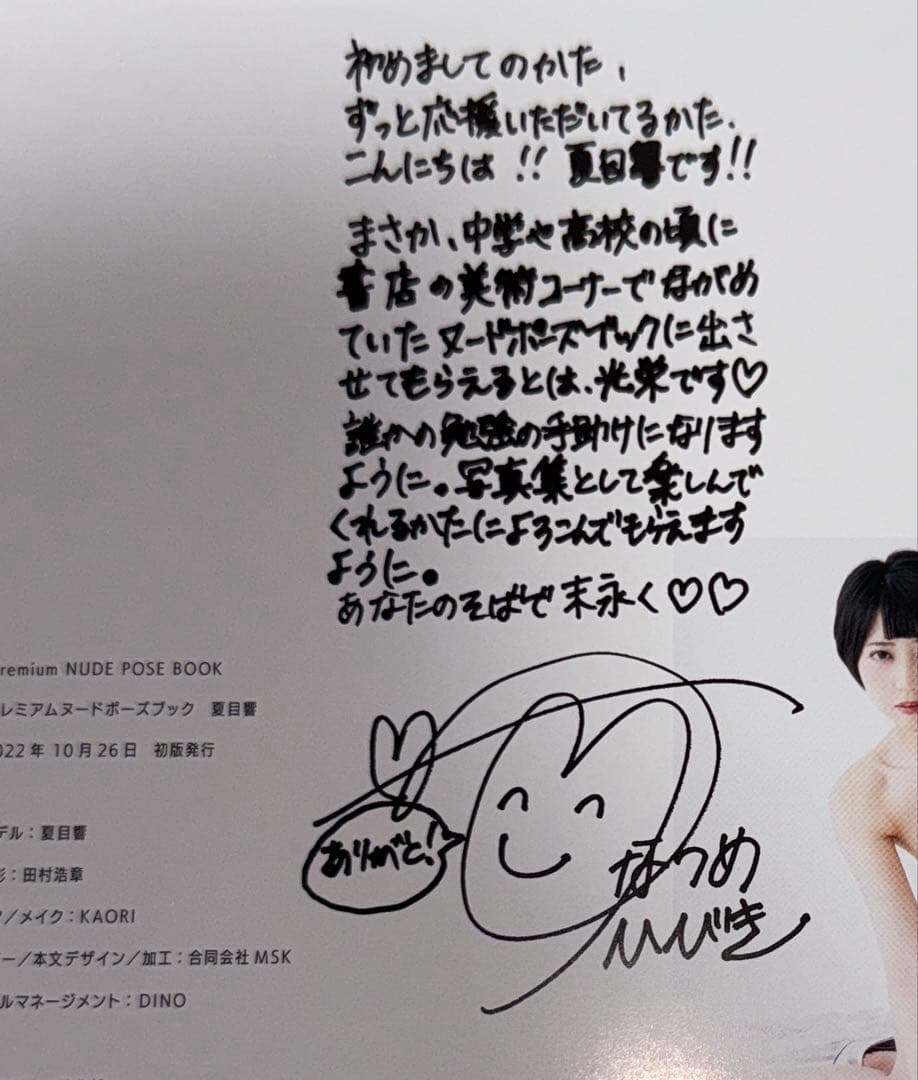 初めましてのかた、
ずっと応援いただいてるかた、
こんにちは!! 夏目響です!!
まさか、中学や高校の頃に
書店の美術コーナーでながめ
ていたヌードポーズブックに出さ
せてもらえるとは、光栄です♡
誰かの勉強の手助けになります
ように。写真集として楽しんで
くれるかたによろこんでもらえます
ように。
あなたのそばで末永く♡♡
ありがと!
なつめ
ひびき
remium NUDE POSE BOOK
レミアムヌードポーズブック 夏目響
022年10月26日 初版発行
デル:夏目響
影:田村浩章
/メイク:KAORI
ー/本文デザイン/加工:合同会社MSK
ルマネージメント:DINO